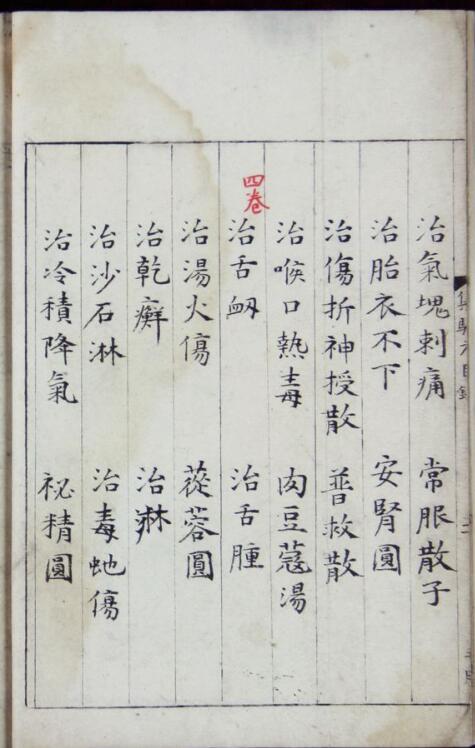 治氣塊刺痛 常服散子
治胎衣不下 安腎圓
治傷折神授散 普救散
治喉口熱毒 肉豆蔻湯
四卷
治舌衄 治舌腫
治湯火傷 蓯蓉圓
治乾癬 治淋
治沙石淋 治毒虵傷
治冷積降氣 祕精圓